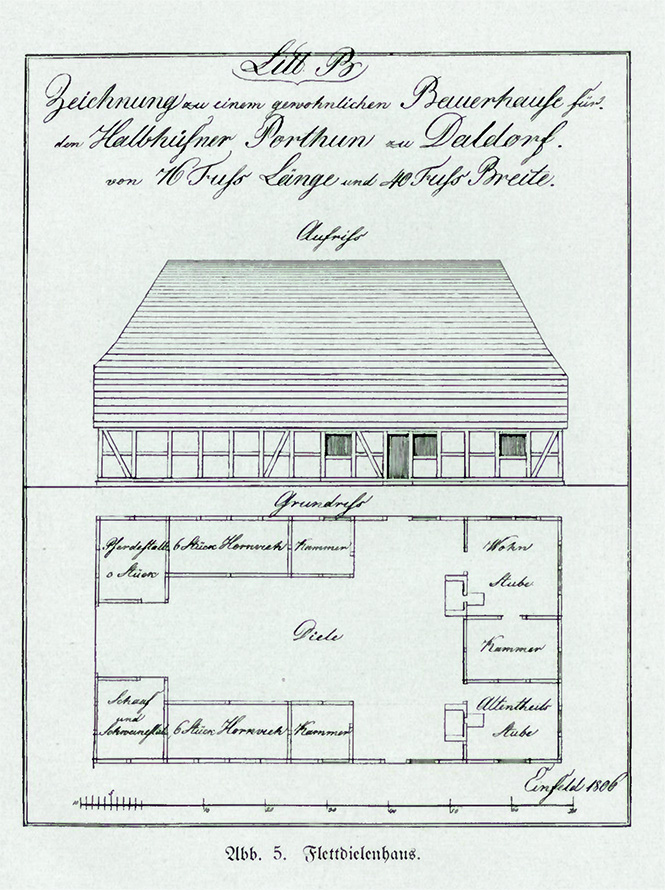 Litt B
Zeichnung zu einem gewohnlichen Bauerhause für
den Halbhüfner Porthun zu Daldorf.
von 76 Fuss Länge und 40 Fuss Breite.
Aufriss
Grundriss
Pferdestall 6 Stück Hornvieh Kammer Wohn
Stück Stube
Diele
Kammer
Schaaf Altentheils
und
Schweinestal 6 Stück Hornvieh Kammer Stube
Einfeld 1806
10 20 30 40 50
Abb. 5. Flettdielenhaus.